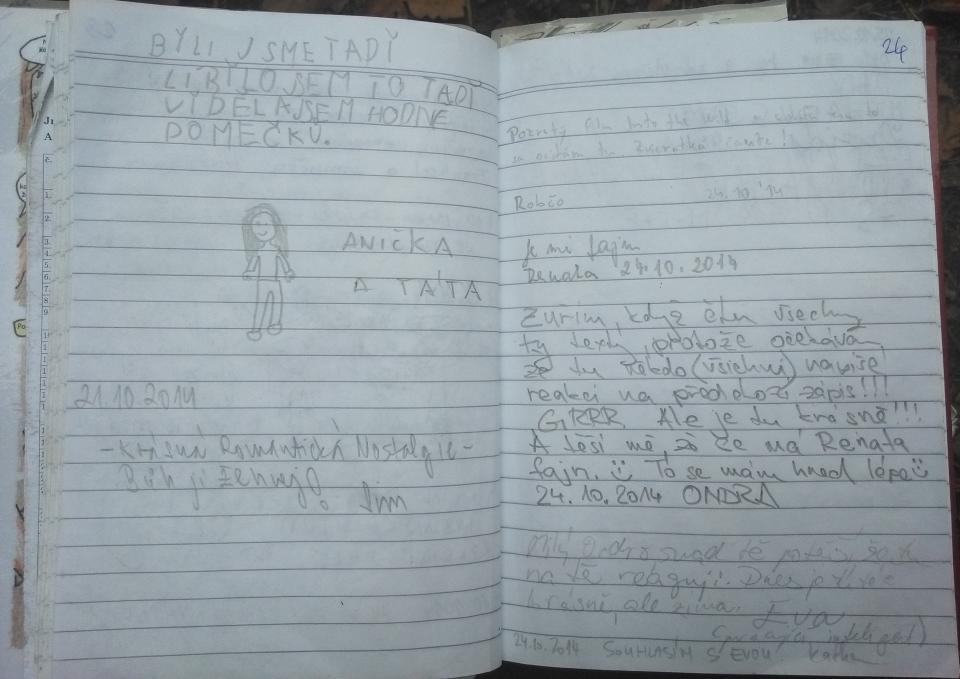 BYLI JSME TADY
LÍBILO JSEM TO TADY
VYDELAJSEM HODNE
DOMEČKŮ.
ANIČKA
A TÁTA
21.10.2014
-Krásná Romantická Nostalgie-
Bůh ji žehnej.
24
Pozretý film Into the
sa ocitám tu
24.10.'14
Robčo
Je mi fajn
Renata 24.10.2014
Zuřím, když čtu všechny
ty texty, protože očekávám,
že tu někdo (všichni) napíše
reakci na předchozí zápis!!!
GRRR Ale je tu krásně!!!
A těší mě, že se má Renata
fajn. Ü To se mám hned lépe Ü
24.10.2014 ONDRA
Milý Ondro snad tě potěší, že
na tě reaguji. Dnes je
krásně, ale zima. Eva
24.10.2014 SOUHLASÍM S EVOU Katka